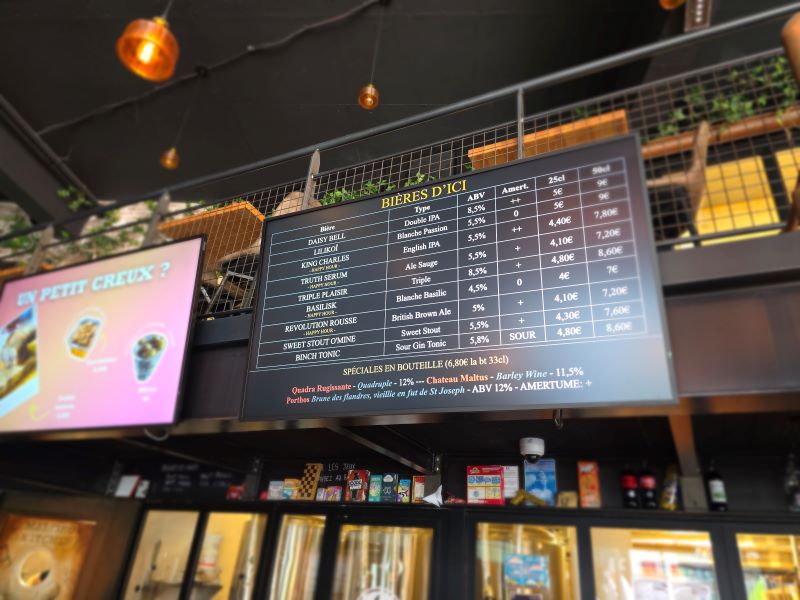 UN PETIT CREUX ?
BIÈRES D'ICI
Bière Type ABV Amert. 25cl 50cl
DAISY BELL Double IPA 8,5% ++ 5€ 9€
LILIKOÏ Blanche Passion 5,5% 0 5€ 9€
KING CHARLES English IPA 5,5% ++ 4,40€ 7,80€
- HAPPY HOUR -
TRUTH SERUM Ale Sauge 5,5% + 4,10€ 7,20€
- HAPPY HOUR -
TRIPLE PLAISIR Triple 8,5% + 4,80€ 8,60€
BASILISK Blanche Basilic 4,5% 0 4€ 7€
- HAPPY HOUR -
REVOLUTION ROUSSE British Brown Ale 5% + 4,10€ 7,20€
- HAPPY HOUR -
SWEET STOUT O'MINE Sweet Stout 5,5% + 4,30€ 7,60€
BINCH TONIC Sour Gin Tonic 5,8% SOUR 4,80€ 8,60€
SPÉCIALES EN BOUTEILLE (6,80€ la bt 33cl)
Quadra Rugissante - Quadruple - 12% --- Chateau Maltus - Barley Wine - 11,5%
Porthos Brune des flandres, vieillie en fut de St Joseph - ABV 12% - AMERTUME: +
LES JEUX